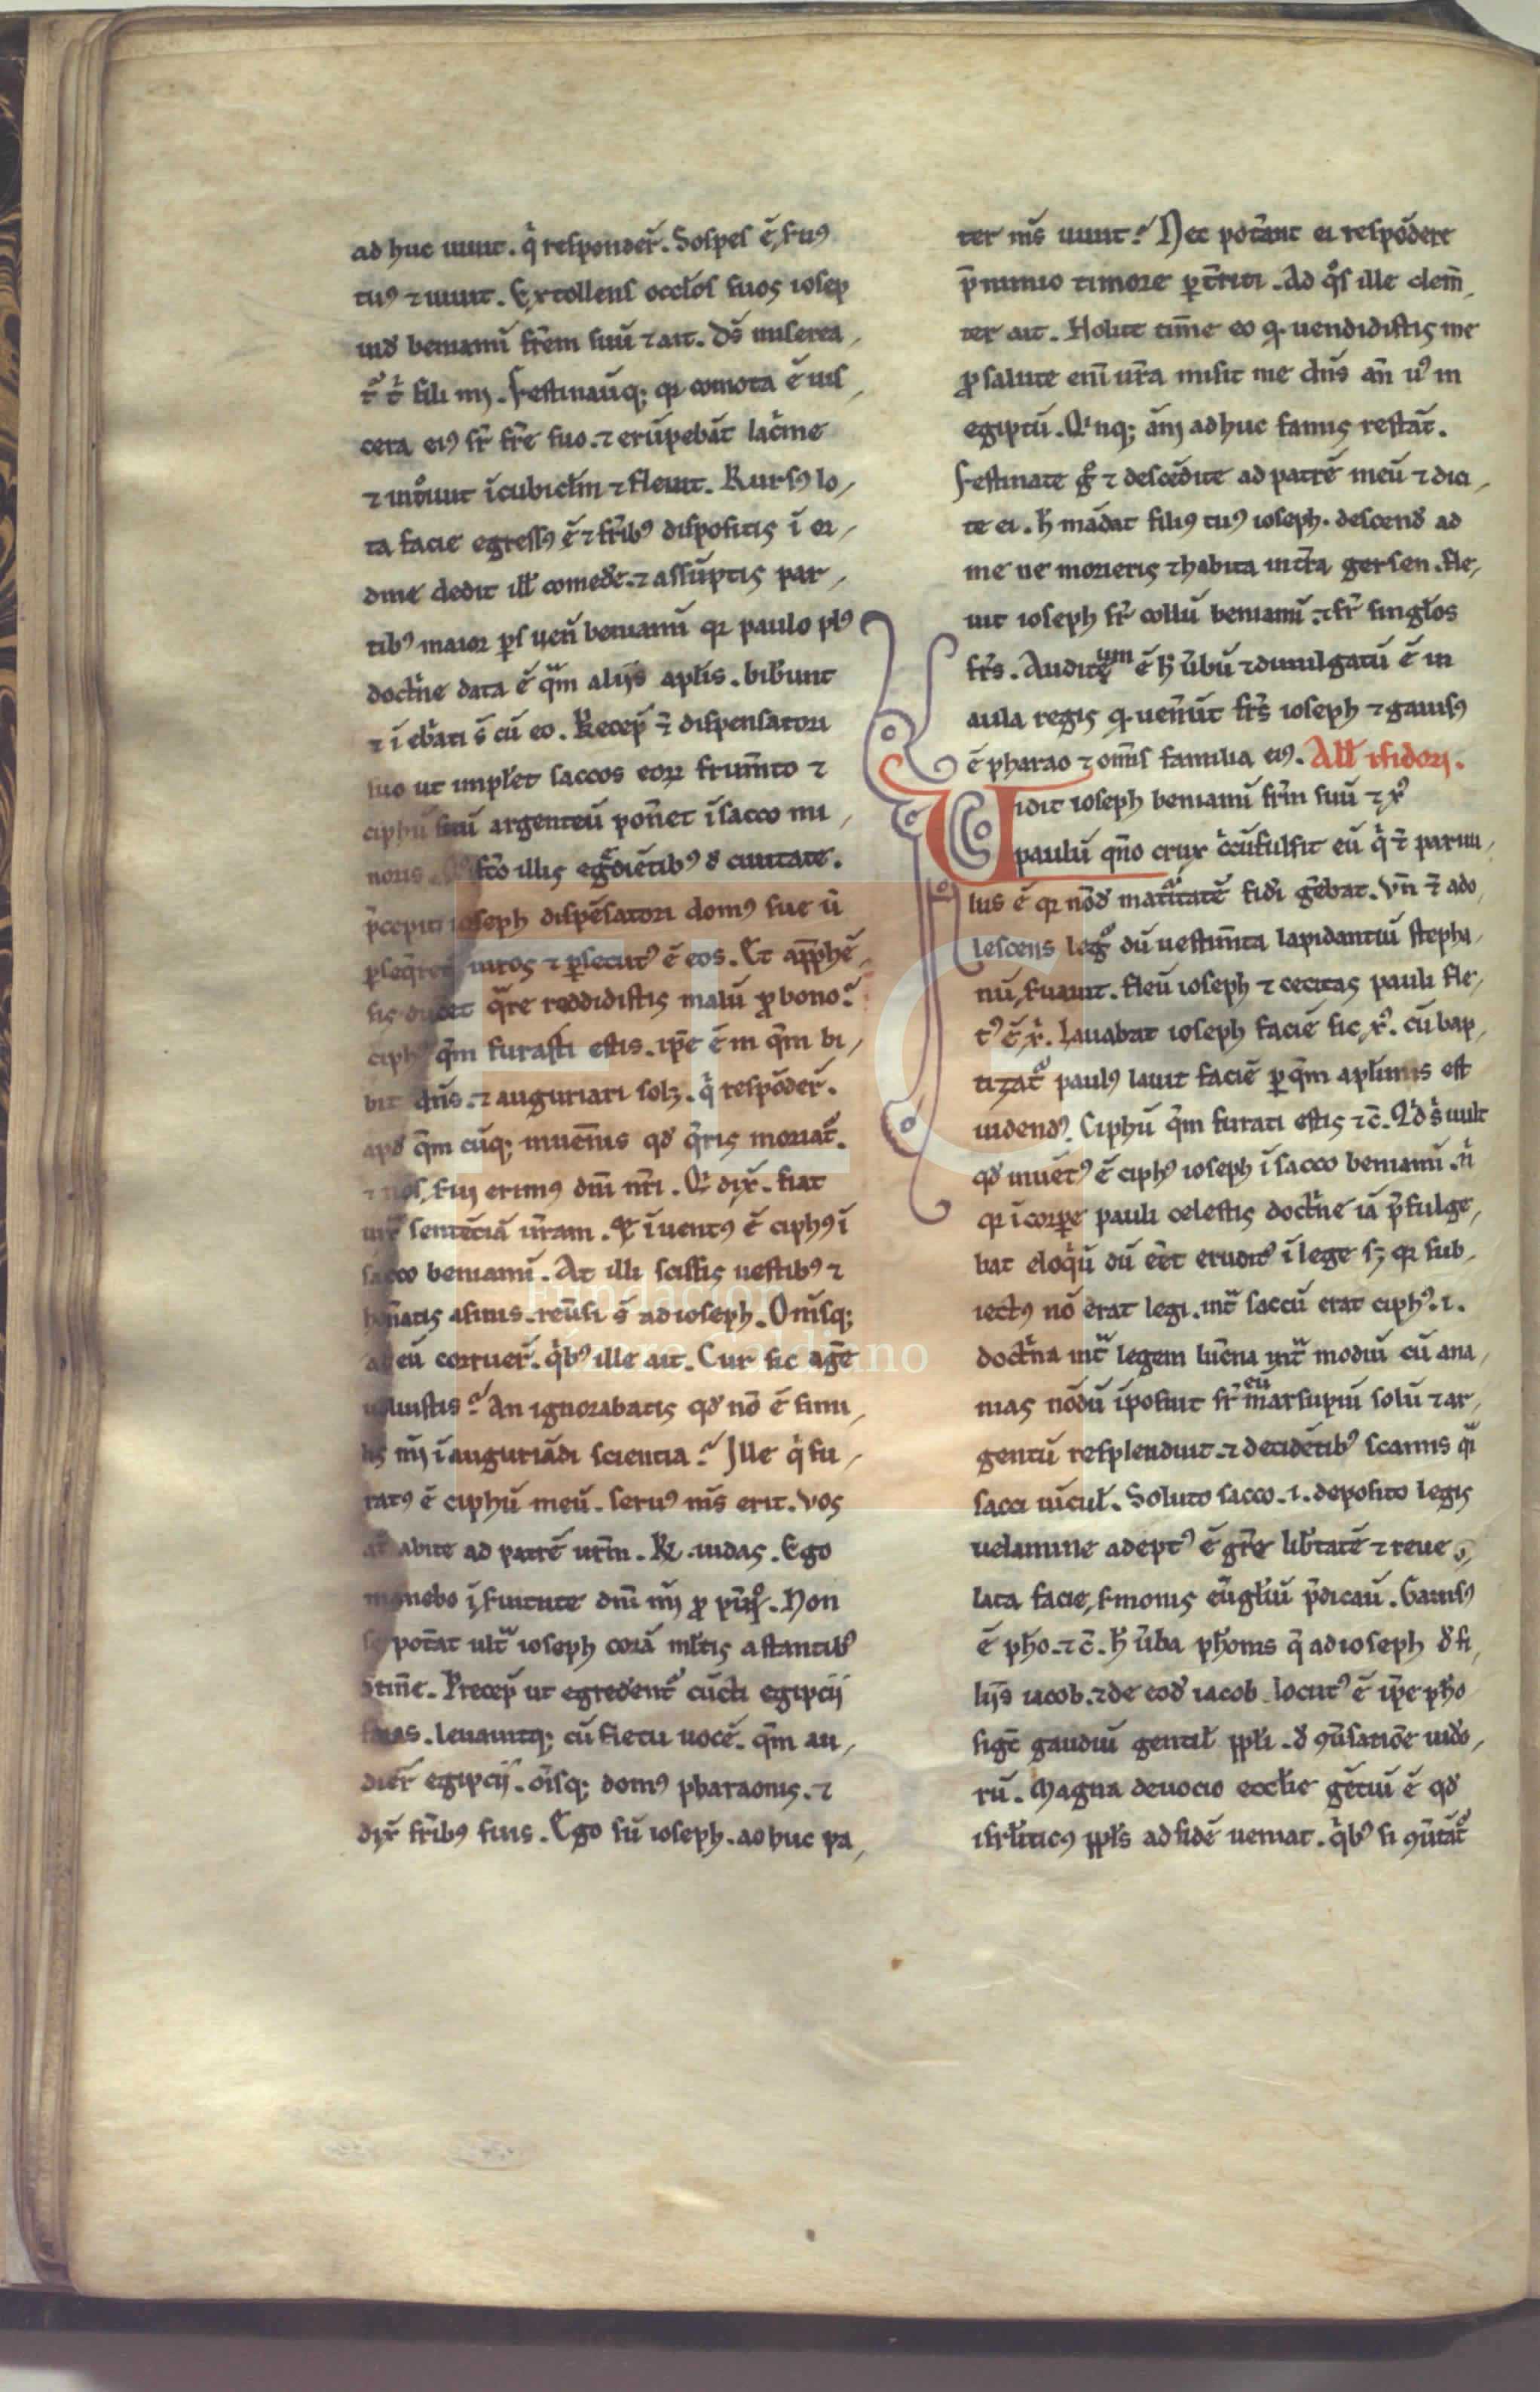 ad huc uiuit. q̇ responder̄. Sospes ē, ẜuꝰ
tuꝰ ⁊ uiuit. Extollens occl̄os suos iosep
uid̄ beniamī fr̄em suū ⁊ ait. Ds̄ miserea
t᷑ ṫ fili mi. Festinauq; qꝛ comota ē uis
cera eiꝰ sr̄ fr̄e suo. ⁊ erūpebāt lac̄me
⁊ int̊uit ī cubicl̄m ⁊ fleuit. Rursꝰ lo
ta facie egressꝰ ē ⁊ fr̄ibꝰ dispositis ī or
dine dedit ill̄ comed̄e. ⁊ assūptis par
tibꝰ maior ꝑs uen̄ beniamī qꝛ paulo plꝰ
doct̄ne data ē qᷓm alijs apl̄is. bib̄unt
⁊ īeb̄ati s̄ cū eo. Recep̄ ⁊̄ dispensatori
suo ut impl̄et saccos eoꝝ frum̄to ⁊
ciphū suū argenteū pon̄et ī sacco mi
noris fc̄o illis eg̃diētibꝰ d̄ ciuitate.
p̄cepit ioseph dispēsatori domꝰ sue ū
ꝑseq̄ret᷑ uiros ⁊ ꝑsecutꝰ ē eos. Et app̄hē
sis diceret qᷓre reddidistis malū ꝓ bono?
ciphꝰ q̄m furasti estis. ip̄e ē in q̄m bi
bit dn̄s. ⁊ auguriari solꝫ. q̇ respōder̄.
apd̄ q̄m cūq; inuen̄is qd̄ q̄ris moriat᷑.
⁊ nos ẜui erimꝰ dn̄i nr̄i. Q̇ dix̄. fiat
iux̄ sentēciā ur̄am. ⁊ īuentꝰ ē ciphꝰ ī
sacco beniamī. At illi scissis uestibꝰ ⁊
hon̄atis asinis. reu̅si s̄ ad ioseph. Om̄sq;
ad eū corruer̄. q̇bꝰ ille ait. Cur sic ag̅e
uoluistis? An ignorabatis qd̄ nō ē simi
lis m̄i ī auguriādi sciencia? Ille q̇ fu
ratꝰ ē ciphū meū. seruꝰ ms̄ erit. Vos
at̄ abite ad patrē ur̄m. R. iudas. Ego
manebo ī ẜuitute dn̄i m̄i ꝓ pūo. Non
se pot̄at ultᷓ ioseph corā ml̄tis astantibꝰ
9tin̄e. Precep̄ ut egredent᷑ cūcti egipcij
foras. leuauitq; cū fletu uocē. q̄m au
dier̄ egipcij. ōīsq; domꝰ pharaonis. ⁊
dix̄ fr̄ibꝰ suis. Ego sū ioseph. ad huc pa
ter ms̄ uiuit? Nec pot̄ant ei respōdere
p̄ nimio timore ꝑt̄riti. Ad q̊s ille clem̄
ter ait. Nolite tim̄e eo q̧ uendidistis me
ꝓ salute enī ur̄a misit me dn̄s an̄ uꝰ in
egiptū. Qi̇nq; āni ad huc famis restāt.
Festinate g̊ ⁊ descēdite ad patrē meū ⁊ dici
te ei. h̄ mādat filiꝰ tuꝰ ioseph. descend̄ ad
me ne morieris ⁊ habita int̄ra gersen. fle
uit ioseph sr̄ collū beniamī. ⁊ sr̄ singl̄os
fr̄s. Auditum ē h̄ ūbū ⁊ diuulgatū ē in
aula regis q̧ uen̄ut fr̄s ioseph ⁊ gauisꝰ
ē pharao ⁊ om̄is familia eiꝰ. All̄ isidori.
Vidit ioseph beniamī fr̄m suū ⁊ xꝰ
paulū qn̄o crux c̊cūfulsit eū q̇ ⁊̄ paruu
lus ē qꝛ nōd̄ mat᷑itatē fid̄i ḡebat. Vn̄ ⁊̄ ado
lescens leg᷑ dū uestim̄ta lapidantiū stepha
nū, ẜuauit. fleū ioseph ⁊ cecitas pauli fle
tꝰ ē x̄i. Lauabat ioseph faciē sic xꝰ. cū bap
tizat᷑ paulꝰ lauit faciē ꝑ q̄m apl̄imis est
uidendꝰ. Ciphū q̄m furati estis ⁊c̄. Qid s̄ uult
qd̄ inuētꝰ ē ciphꝰ ioseph ī sacco beniamī. n̄
qꝛ ī corꝑe pauli celestis doct̄ne iā p̄fulge
bat eloq̇ū dū er̄t eruditꝰ ī lege sꝫ qꝛ sub
iectꝰ nō erat legi. intᷓ saccū erat ciphꝰ. i.
doct̄na intᷓ legem luc̄na intᷓ modiū cū ana
nias nōdū īposuit sr̄ eū marsupiū solū ⁊ ar
gentū resplenduit. ⁊ decidētibꝰ scamis q̇i
sacci uicul̄. Soluto sacco. i. deposito legis
uelamine adeptꝰ ē gr̄e lib̄tatē ⁊ reue
lata facie, ẜmonis eūgl̄iū p̄dicau̅. Gauisꝰ
ē ph̄o. ⁊c̄. h̄ ūba ph̄onis q̄ ad ioseph d̄ fi
lijs iacob. ⁊ de eod̄ iacob locutꝰ ē ip̄e ph̄o
sigt̄ gaudiū gentil̄ ppl̄i. d̄ 9ūsatiōe iudo
rū. Magna deuocio eccl̄ie gētiū ē qd̄
isrl̄iticꝰ ppl̄s ad fidē ueniat. q̇bꝰ si 9ūtāt᷑